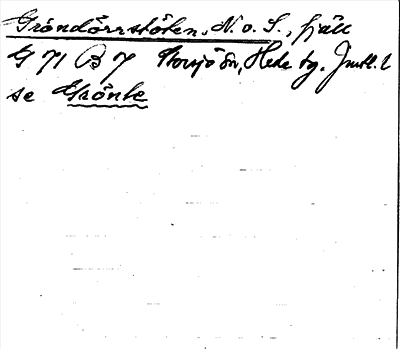 Gröndörrstöten, N. o. S., fjäll
G 71 B 7 Storsjö sn, Hede tg. Jmtl. l
se Grönte